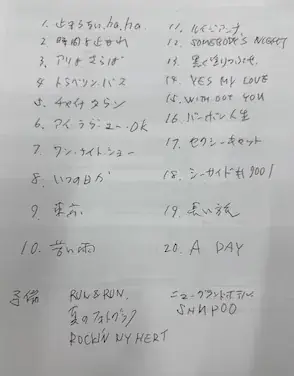 1. 止まらない ha.ha
2 時間よ止まれ
3. アリよさらば
4 トラベリン.バス
5. チャイナタウン
6. アイ.ラヴ.ユー.OK
7. ワン.ナイト.ショー
8. いつの日か
9. 東京
10. 苦い雨
11. ルイジアンナ
12. SOMEBODY'S NIGHT
13. 黒く塗りつぶせ
14 YES MY LOVE
15. WITHOUT YOU
16. バーボン人生
17. セクシーキャット
18. シーサイド 9001
19. 黒い
20. A DAY
予備
RUN & RUN.
夏のフォトグラフ
ROCK'N MY HERT
ニューグランドホテル
SHAPOO